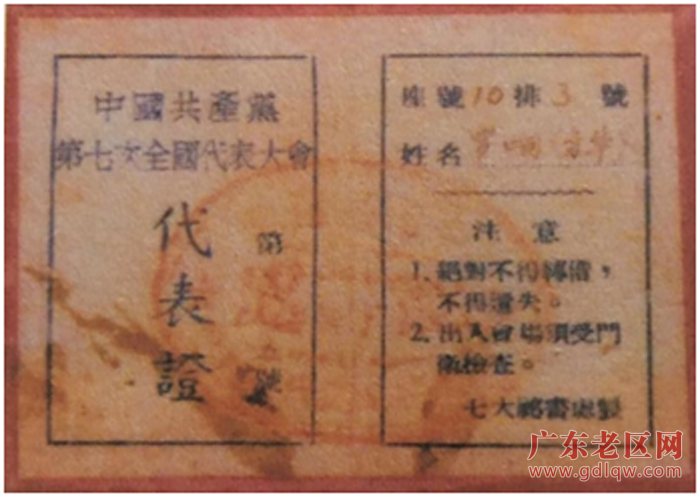 中國共產黨
第七次全國代表大會
代表證
第
號
座號10排3號
姓名
注意
1.絕對不得轉借，
不得遺失。
2.出入會場須受門
衛檢查。
七大祕書處製
广东老区网
www.gdlqw.com